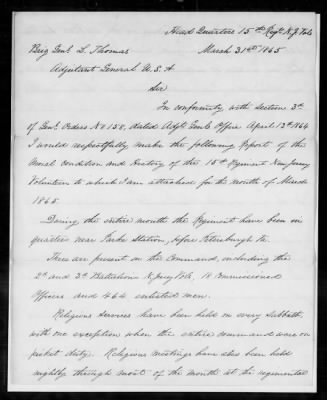 Head Quarters 15th Regt. N.J. Vols
March 31st 1865
Brig Genl. L. Thomas
Adjutant General U.S.A
Sir
In conformity with Section 3d
of Genl. Orders No 158, dated Adjt. Genl's Office April 13th 1864
I would respectfully make the following Report of the
moral condition and History of the 15th Regiment New Jersey
Volunteers to which I am attached for the month of March
1865.
During the entire month the Regiment have been in
quarters near Parke Station, before Petersburgh Va.
There are present in the Command, including the
2d and 3d Battalions N. Jersey Vols, 18 Commissioned
Officers and 464 enlisted men.
Religious services have been held on every Sabbath
with one exception when the entire command were on
picket duty. Religious meetings have also been held
nightly through most of the month at the regimental